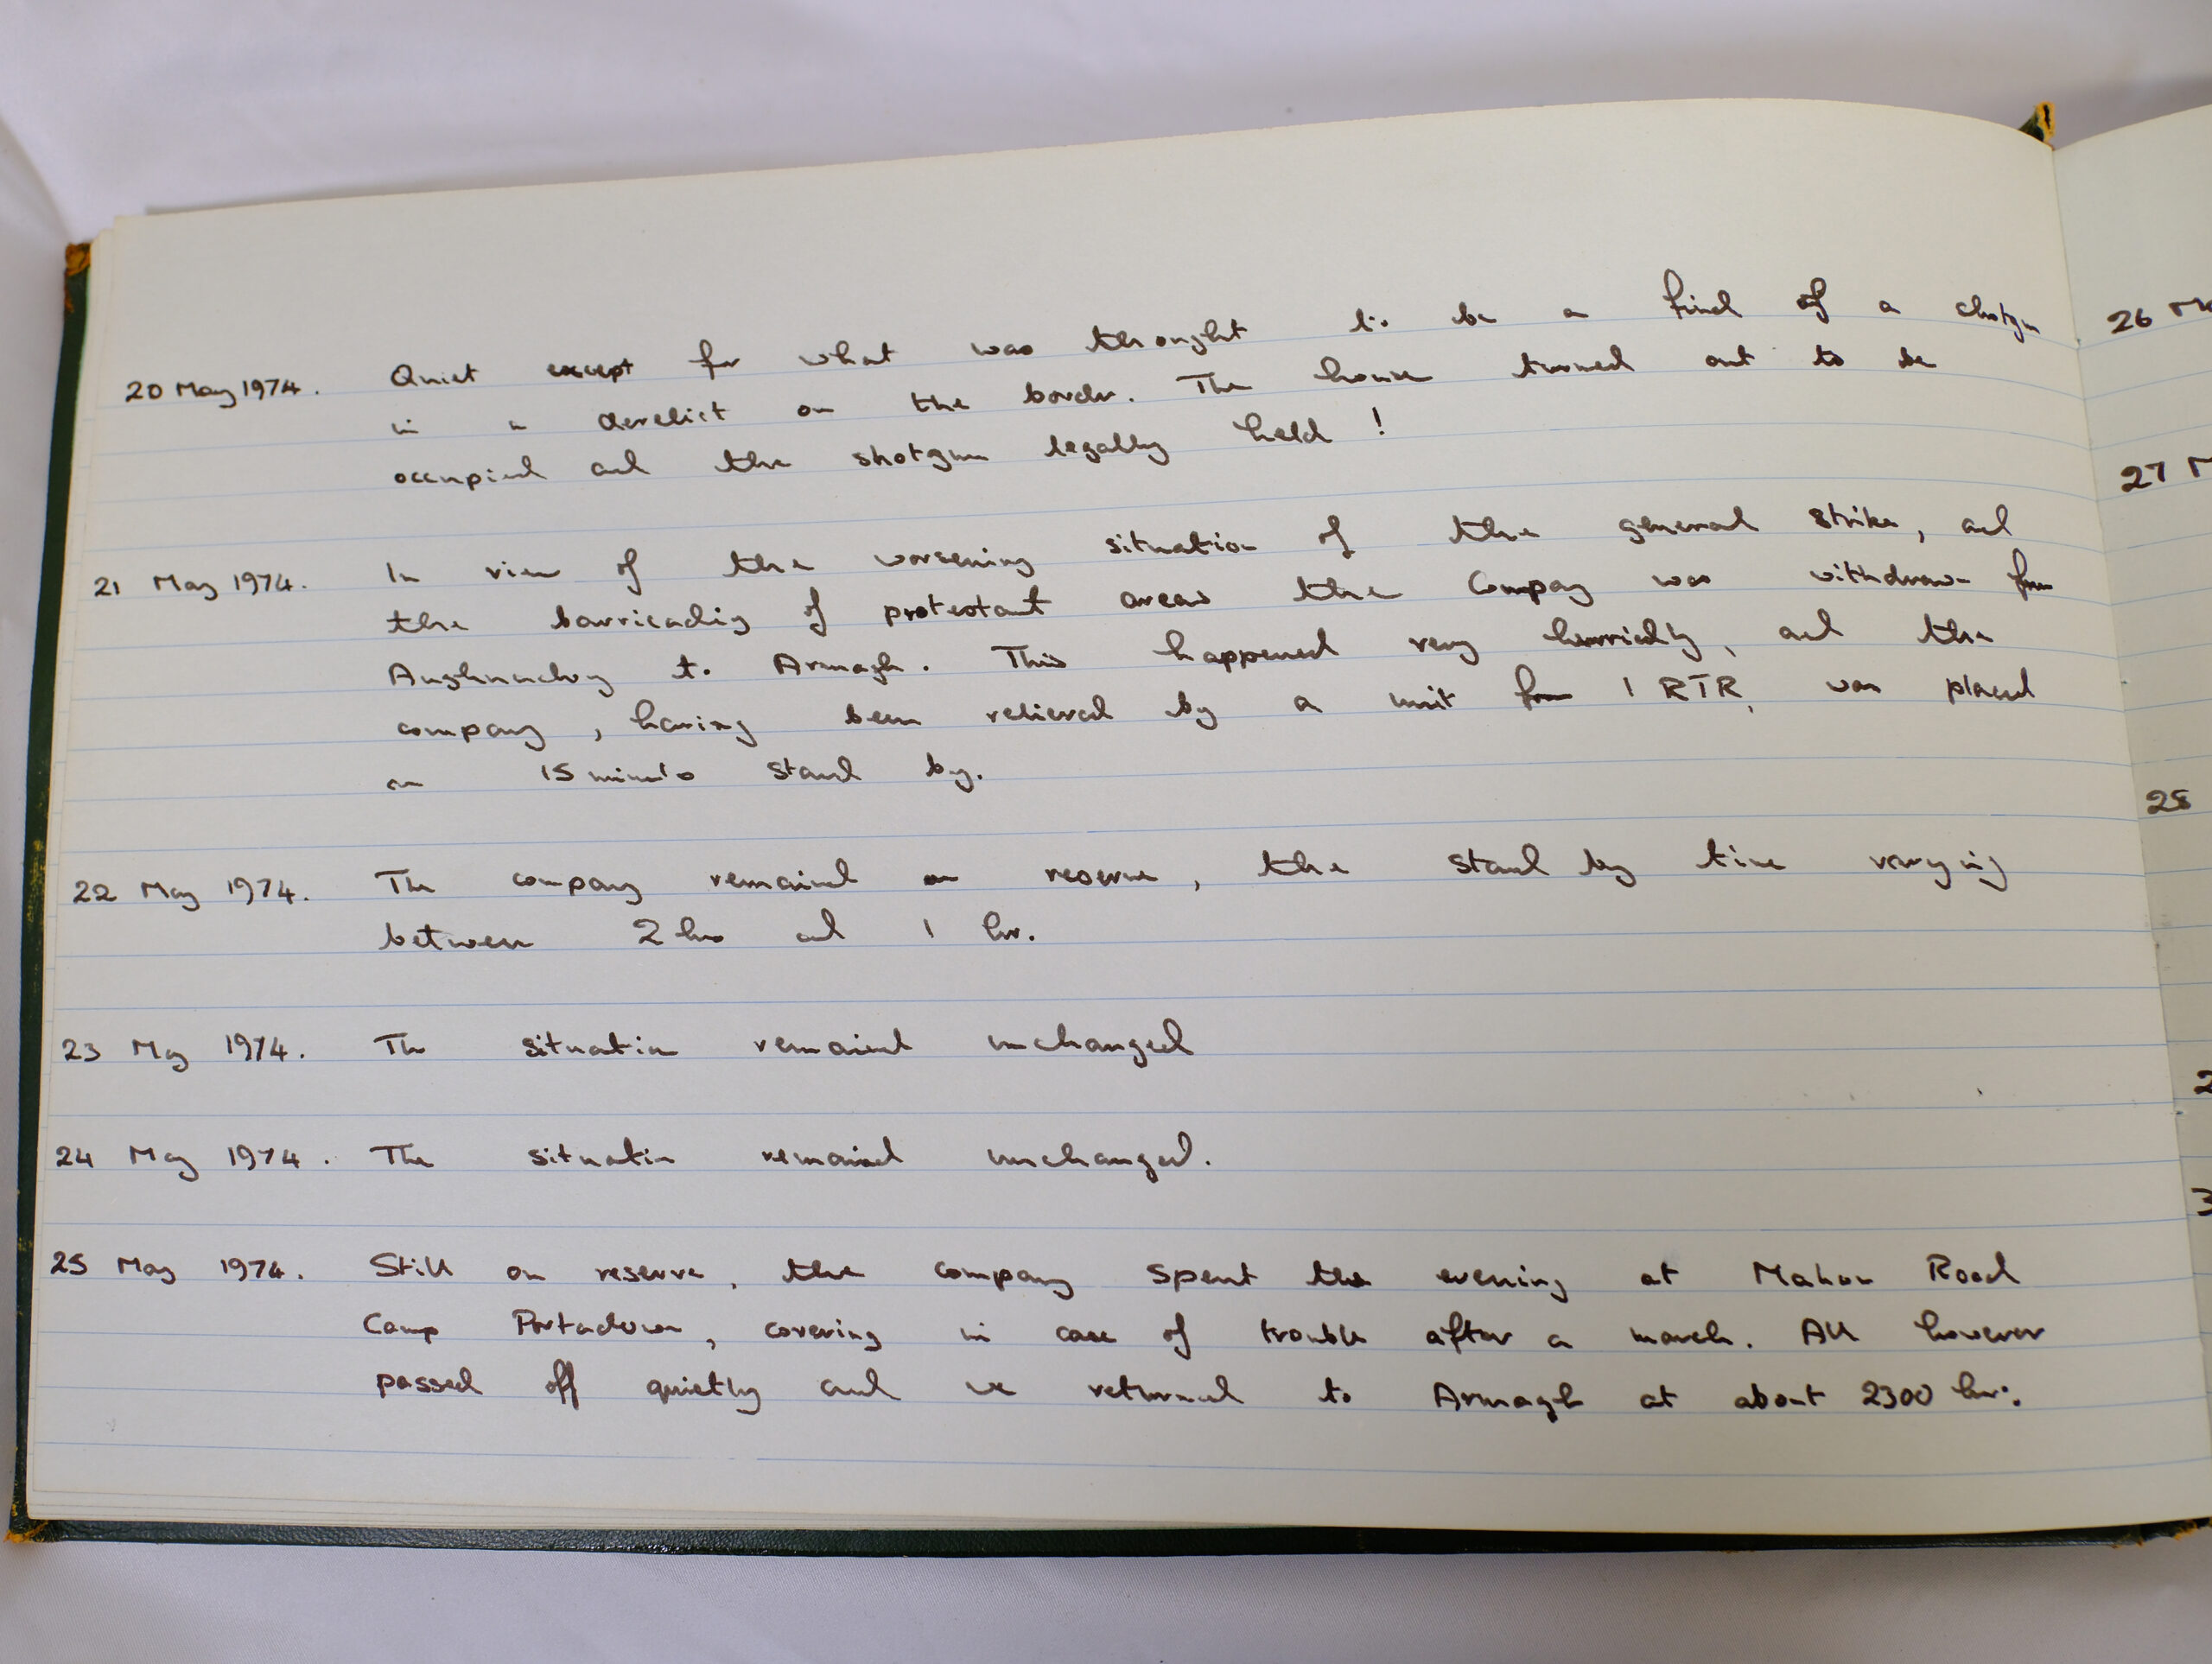 20 May 1974. Quiet except for what was thought to be a find of a shotgun
in a derelict on the border. The house turned out to be
occupied and the shotgun legally held !
21 May 1974. In view of the worsening situation of the general strike, and
the barricading of protestant areas the Company was withdrawn from
Aughnacloy to Armagh. This happened very hurriedly, and the
company, having been relieved by a unit from 1 RTR, was placed
on 15 minute stand by.
22 May 1974. The company remained on reserve, the stand by time varying
between 2 hrs and 1 hr.
23 May 1974. The situation remained unchanged
24 May 1974. The situation remained unchanged.
25 May 1974. Still on reserve, the company spent the evening at Mahon Road
Camp Portadown, covering in case of trouble after a march. All however
passed off quietly and we returned to Armagh at about 2300 hrs.
26
27
28